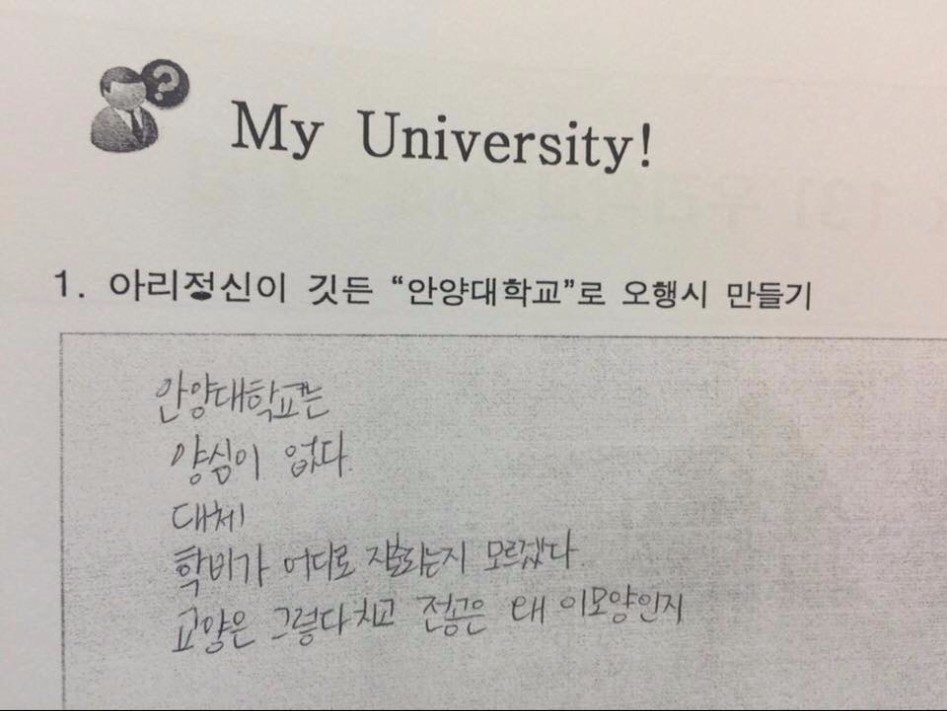 ?
My University!
1. 아리정신이 깃든 “안양대학교”로 오행시 만들기
안양대학교는
양심이 없다.
대체
학비가 어디로 모르겠다.
교양은 그렇다치고 전공은 왜 이모양인지